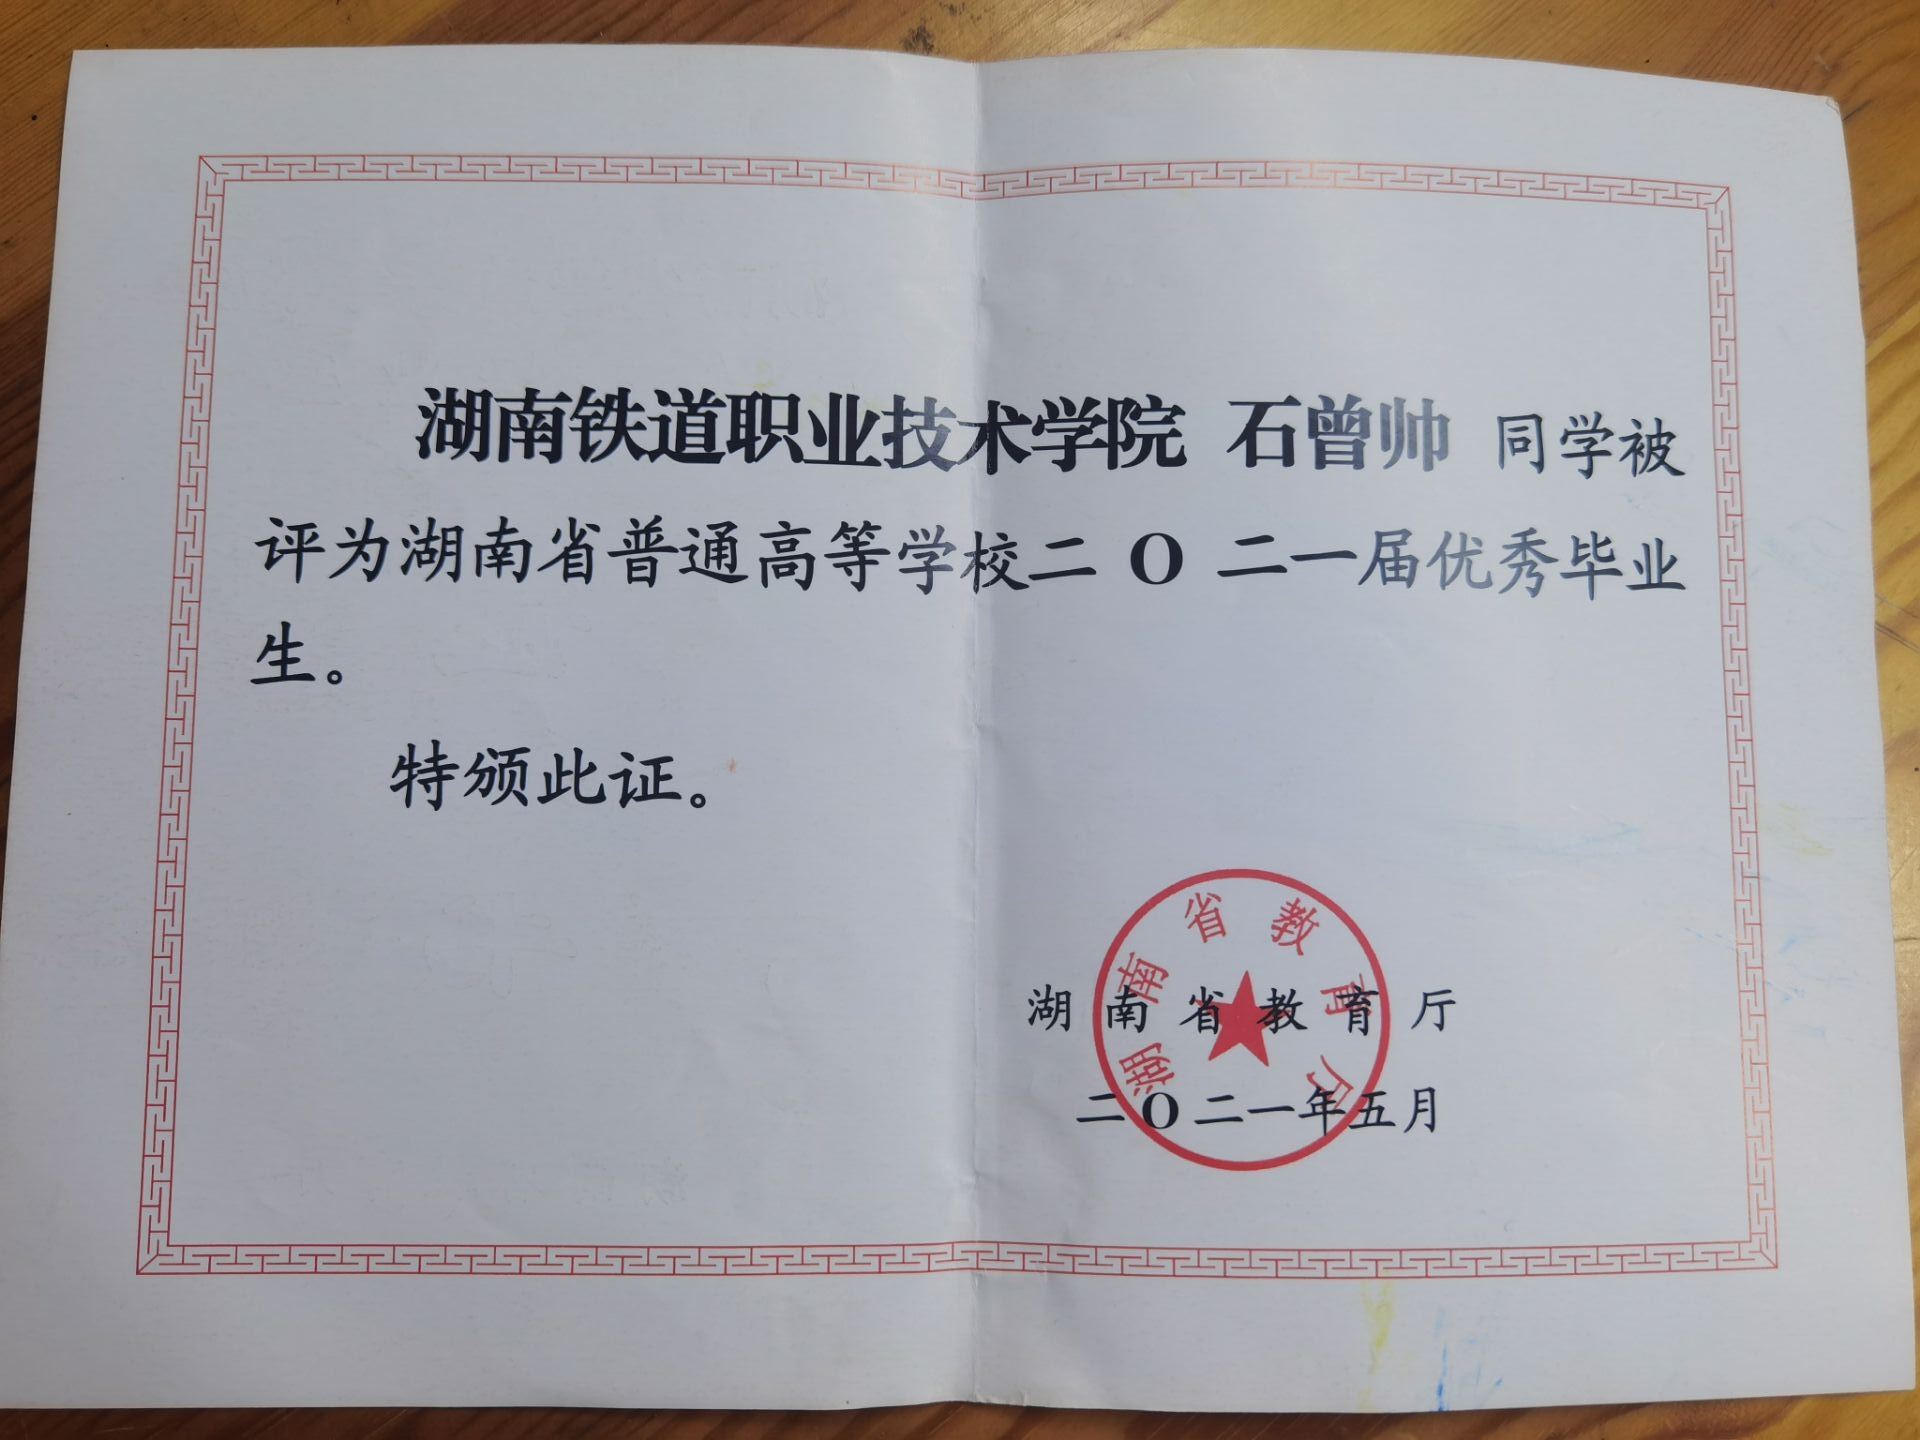 湖南铁道职业技术学院 石曾帅 同学被
评为湖南省普通高等学校二O二一届优秀毕业
生。
特颁此证。
湖南省教育厅
湖南省教育厅
二O二一年五月